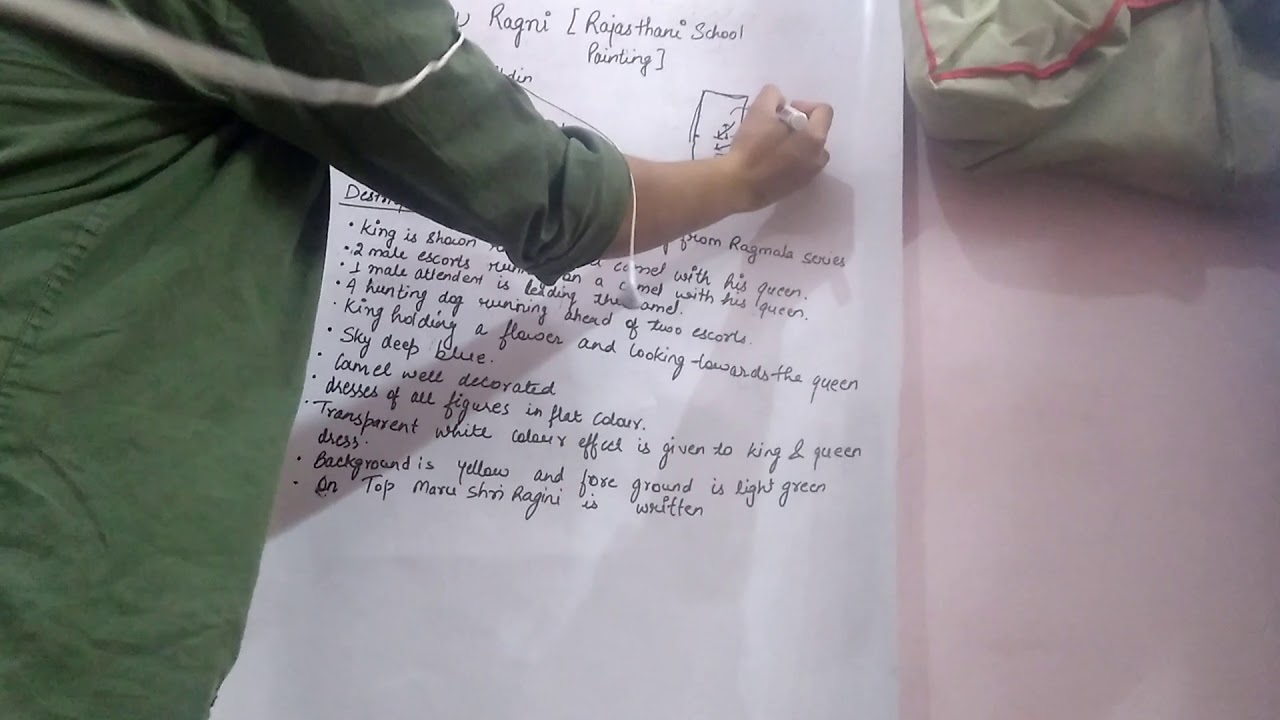 Ragni [Rajasthani School
Painting]
from Ragmala series
• King is shown camel with his queen.
• 2 male escorts on a camel with his queen.
• 1 male attendent is leading the camel.
• A hunting dog running ahead of two escorts.
• King holding a flower and looking towards the queen
• Sky deep blue.
• Camel well decorated
• dresses of all figures in flat colour.
• Transparent white colour effect is given to king & queen
dress.
• Background is yellow and fore ground is light green
• On Top Maru Shri Ragini is written